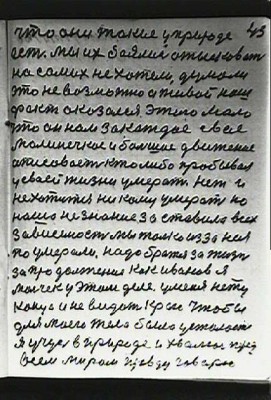 что они такие у природе 43
ест. мы их баялис отысковат
на самих не хотели, думали
это не возможно а живой наш
факт оказался этого мало
что он нам за каждое свое
молинечкое и болшое движение
описовает. кто либо пробывал
у своей жизни умерат нет и
не хотится ни кому умерат но
наше не знание заставила всех
зависемости мы толко из за нея
поумерали, надо братся за жизн
за продолжения как иванов я
молчек у этом деле, уменя нету
кокус и не видат крас чтобы
для моего тела было усталост
я учус в природе и хвалюс пред
всем миром правду говорю